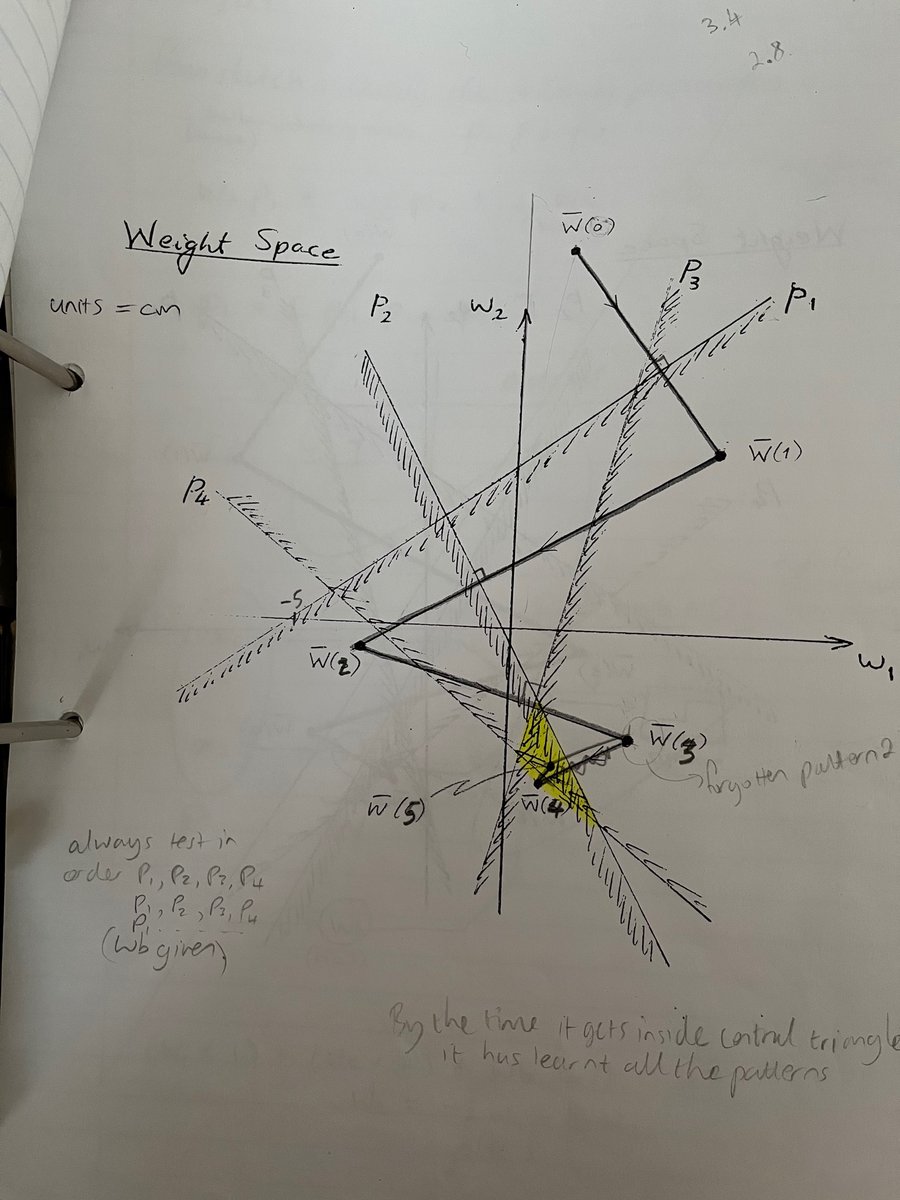 3.4
2.8.
Weight Space
units = cm
W̅(0)
P3
P1
P2
W2
W̅(1)
P4
-5
W̅(2)
W1
W̅(3)
forgotten pattern 2
W̅(5)
W̅(4)
always test in
order P1, P2, P3, P4
P1, P2, P3, P4
P1
(Wb given)
By the time it gets inside central triangle
it has learnt all the patterns